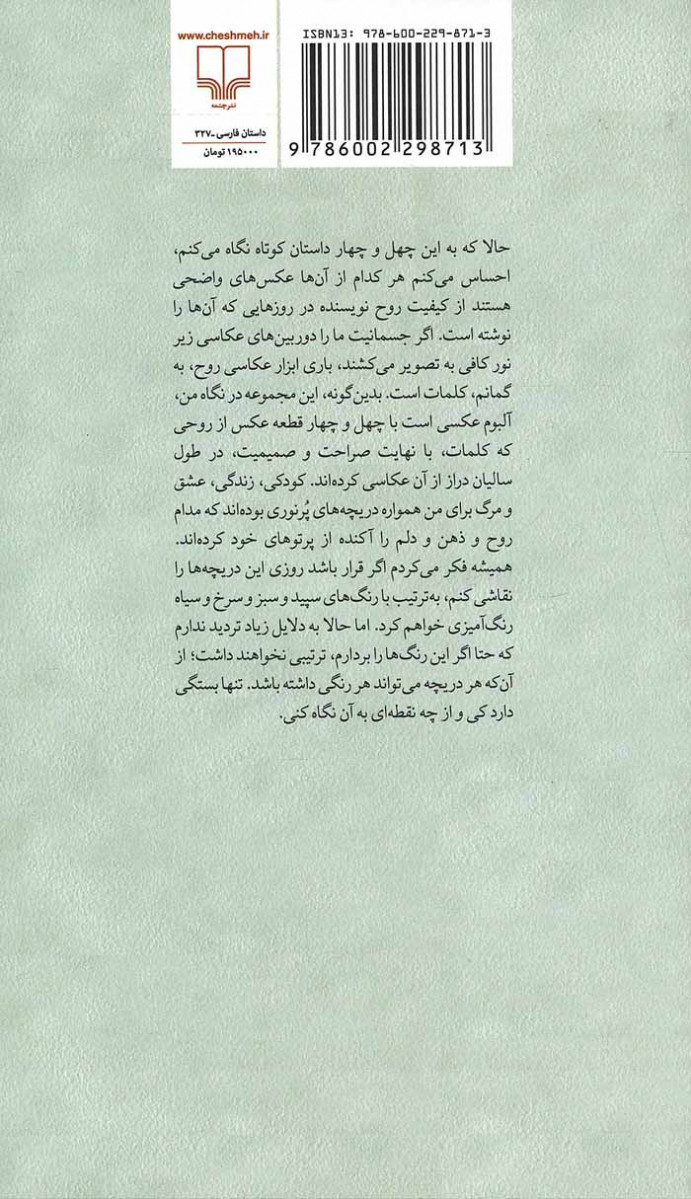 www.cheshmeh.ir
نشرچشمه
داستان فارسی ـ ۳۲۷
۱۹۵۰۰۰ تومان
ISBN13: 978-600-229-871-3
9 786002 298713
حالا که به این چهل و چهار داستان کوتاه نگاه می‌کنم،
احساس می‌کنم هر کدام از آن‌ها عکس‌های واضحی
هستند از کیفیت روح نویسنده در روزهایی که آن‌ها را
نوشته است. اگر جسمانیت ما را دوربین‌های عکاسی زیر
نور کافی به تصویر می‌کشند، باری ابزار عکاسی روح، به
گمانم، کلمات است. بدین‌گونه، این مجموعه در نگاه من،
آلبوم عکسی است با چهل و چهار قطعه عکس از روحی
که کلمات، با نهایت صراحت و صمیمیت، در طول
سالیان دراز از آن عکاسی کرده‌اند. کودکی، زندگی، عشق
و مرگ برای من همواره دریچه‌های پُرنوری بوده‌اند که مدام
روح و ذهن و دلم را آکنده از پرتوهای خود کرده‌اند.
همیشه فکر می‌کردم اگر قرار باشد روزی این دریچه‌ها را
نقاشی کنم، به‌ترتیب با رنگ‌های سپید و سبز و سرخ و سیاه
رنگ‌آمیزی خواهم کرد. اما حالا به دلایل زیاد تردید ندارم
که حتا اگر این رنگ‌ها را بردارم، ترتیبی نخواهند داشت؛ از
آن‌که هر دریچه می‌تواند هر رنگی داشته باشد. تنها بستگی
دارد کی و از چه نقطه‌ای به آن نگاه کنی.